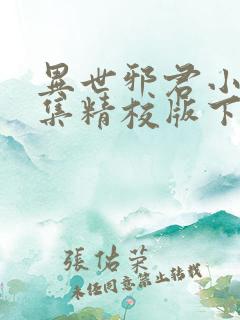 異世邪君小
集精校版下
張佑荣
未経同意禁止转载